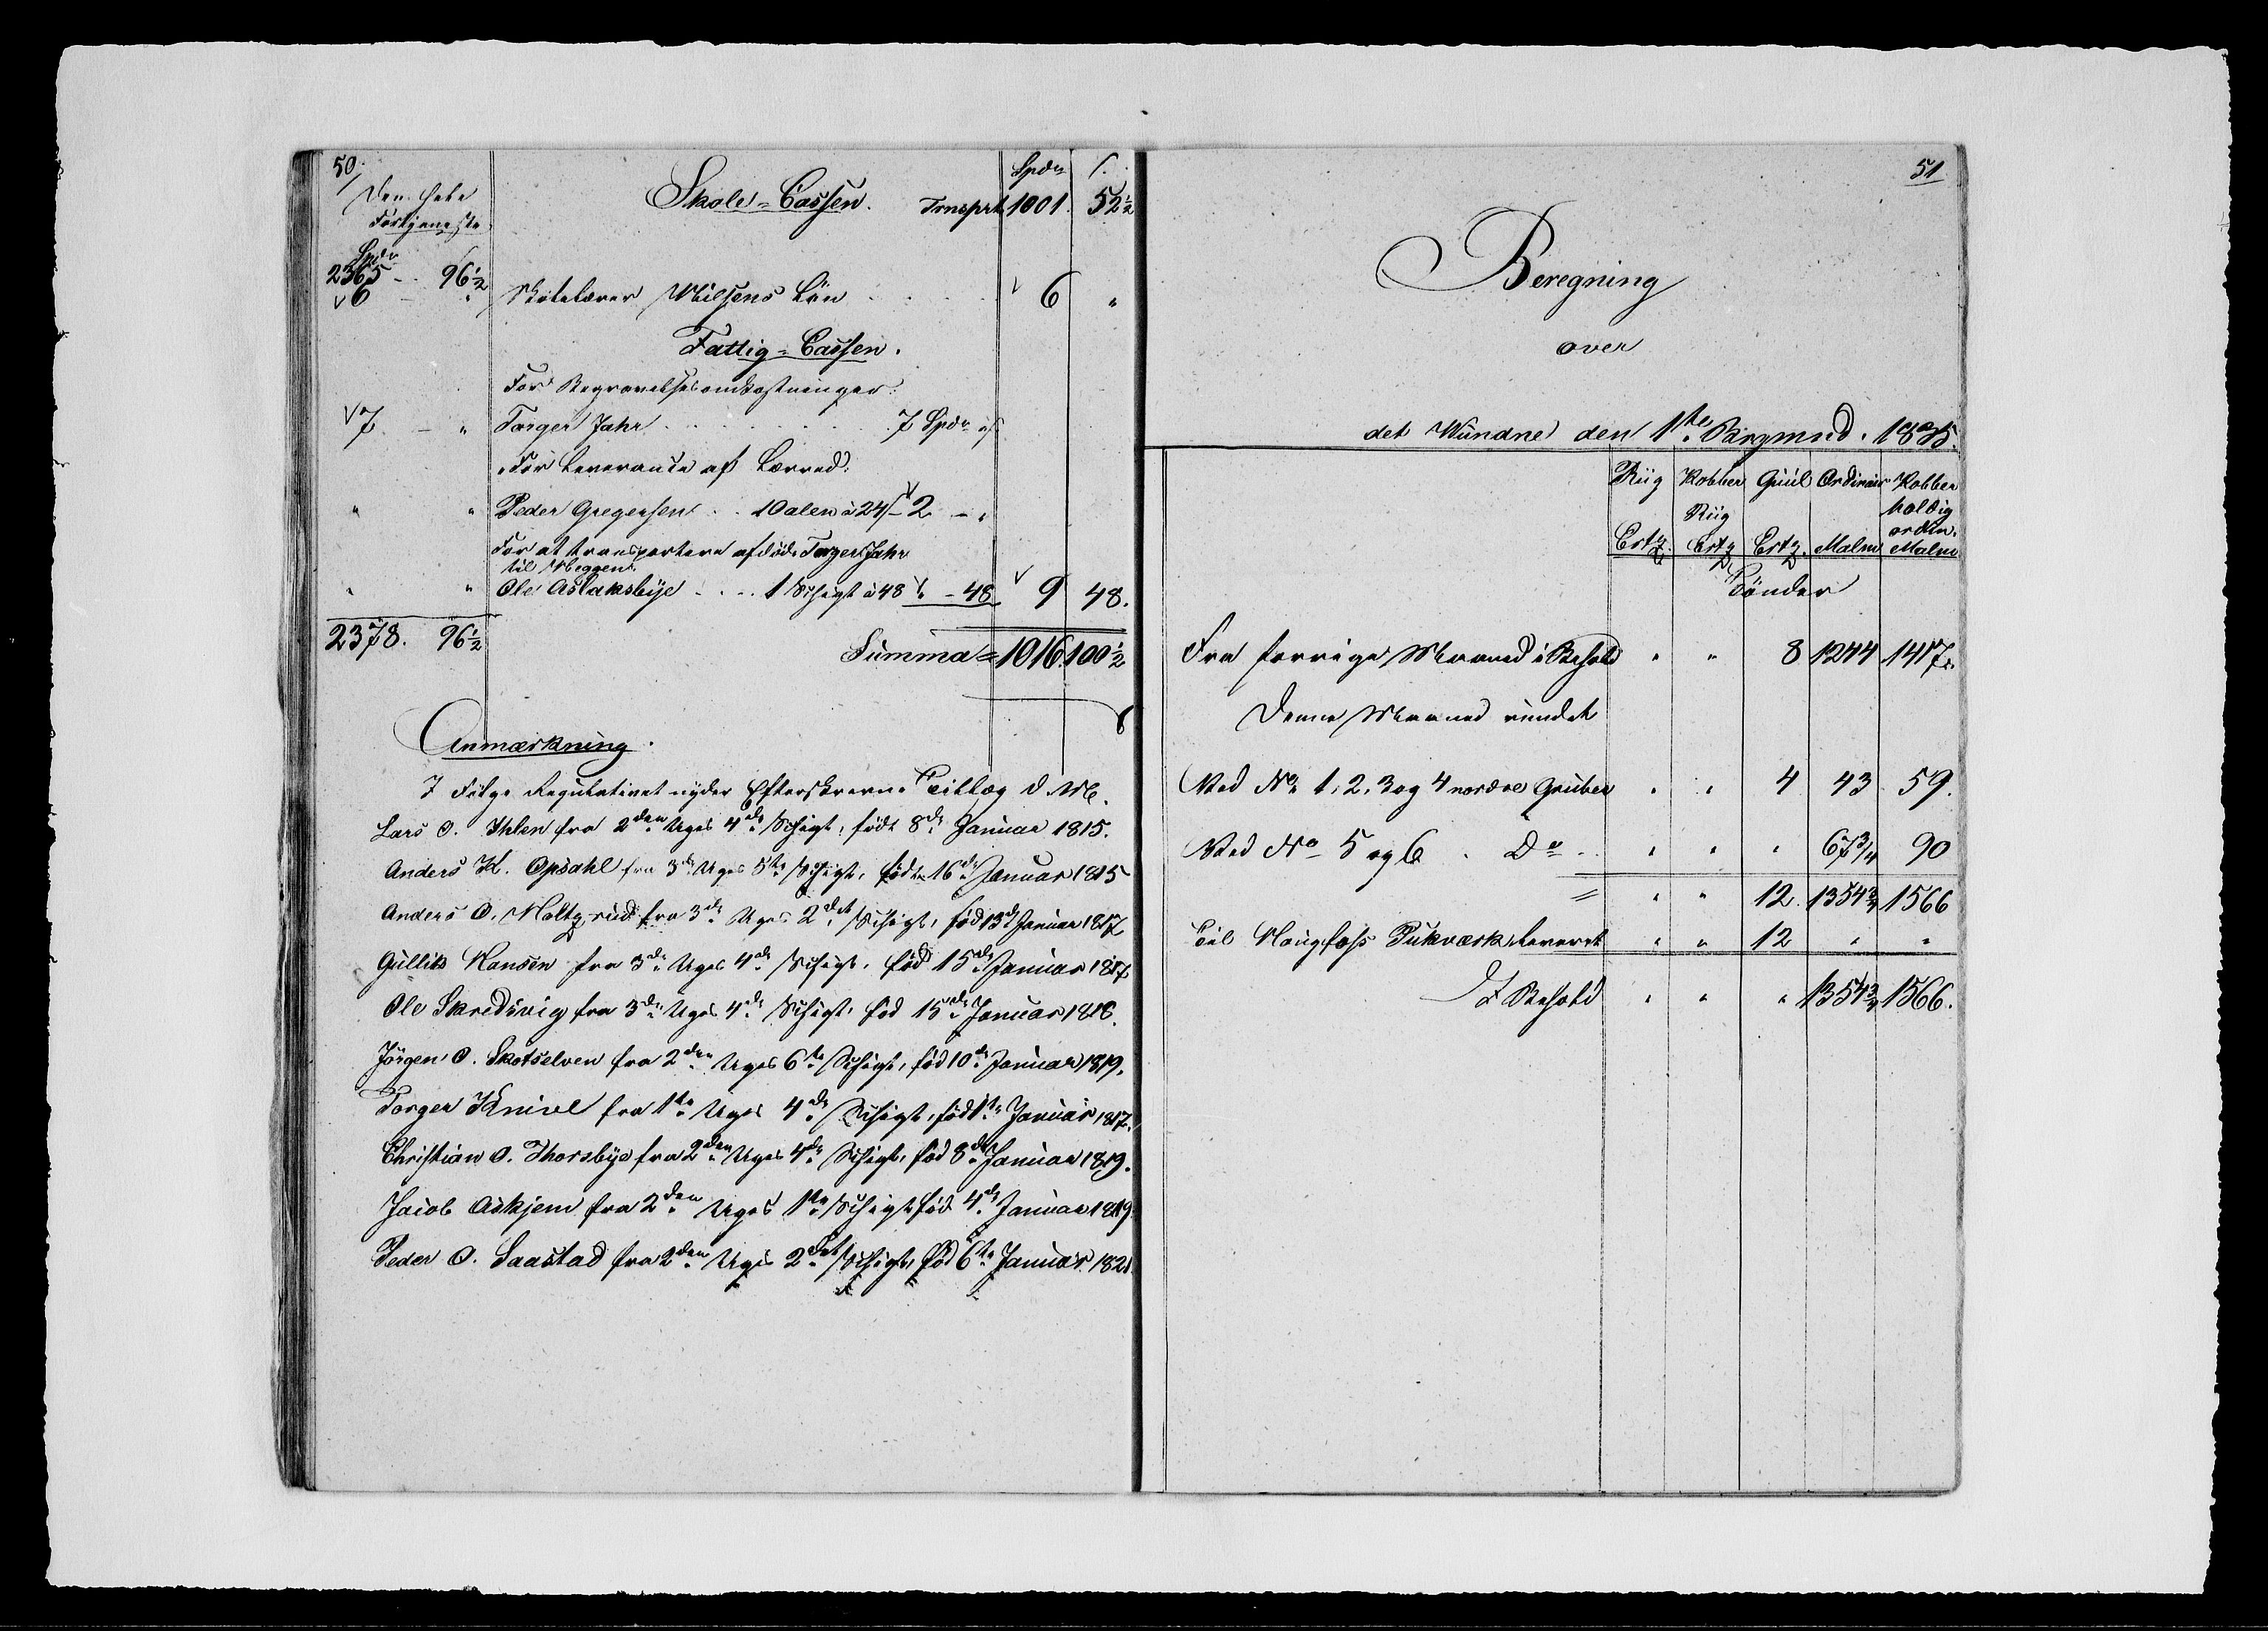 50.
Den hele
Fortjeneste
Spdr
Spdr ſ.
Skole-Cassen. Trnsprt 1001. 52½
2365 - 96½
6 - " Skolelærer Nielsens Løn 6 "
Fattig-Cassen.
For Begravelsesomkostninger:
7 - " Torger Jahr 7 Spdr "
For Leverance af Lærred:
" " Peder Gregersen 10 alen à 24 ſ 2 - "
For at transportere afdöde Torger Jahr
til Heggen.
" " Ole Aslaksbye 1 Schigt à 48 " - 48 9 48.
2378. 96½
Summa = 1016. 100½
Anmærkning.
I Følge Regulativet nyder Efterskrevne Tillæg d. M.
Lars O. Ihlen fra 2den Uges 4de Schigt, født 8de Januar 1815.
Anders K. Opsahl fra 3de Uges 5te Schigt, født 16de Januar 1815
Anders O. Moltzrud fra 3de Uges 2det Schigt, fød 13de Januar 1817
Gullik Hansen fra 3de Uges 4de Schigt, fød 15de Januar 1817
Ole Skredsvig fra 3de Uges 4de Schigt, fød 15de Januar 1818.
Jörgen O. Skotselven fra 2den Uges 6te Schigt, fød 10de Januar 1819.
Torger Knive fra 1te Uges 4de Schigt, fød 1te Januar 1817.
Christian O. Thorsbye fra 2den Uges 4de Schigt, fød 8de Januar 1819.
Jacob Askjem fra 2den Uges 1te Schigt fød 4de Januar 1819.
Peder O. Saastad fra 2den Uges 2det Schigt, fød 6te Januar 1821
51
Beregning
over
det Wundne den 1te Brgmnd. 1835.
Riig Kobber Guul Ordinair Kobber
Riig holdig
ordin.
Ertz Ertz Ertz. Malm Malm
Tönder
Fra forrige Maaned i Behold " " 8 1244 1417.
Denne Maaned vundet
Ved No 1, 2, 3 og 4 nordre Gruber " " 4 43 59.
Ved No 5 og 6 Do " " " 67¾ 90
= " " 12. 1354¾ 1566
Til Hougfoss Pukværk leveret " " 12 " "
I Behold " " " 1354¾ 1566.